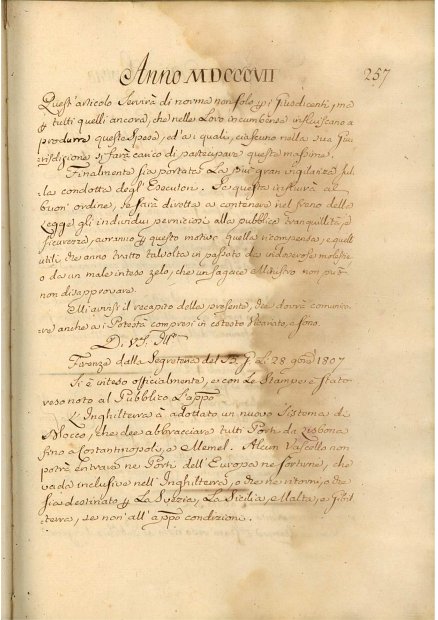 Anno MDCCCVII 257
Quest'articolo Servirà di norma non solo p i Giusdicenti, ma
p tutti quelli ancora, che nelle Loro incumbenze influiscano a
produrre queste Spese, ed a i quali, ciascuno nella sua Giu
risdizione si farà carico di partecipare questa massima.
Finalmente sia portata La più gran vigilanza sul
la condotta degl'Esecutori. Se questa influirà al
buon'ordine, se sarà diretta a contenere nel freno della
Legge gli individui perniciosi alla pubblica tranquillità, e
sicurezza, avranno p questo motivo quella ricompensa, e quelli
utili che anno tratto talvolta in passato da indoverose molestie
o da un male inteso zelo, che un sagace Ministro non può
non disapprovare.
Elli avvisi il recapito della presente, che dovrà comunica
re anche ai Potestà compresi in cotesto Vicariato, e sono.
D. VS. Ill
Firenze dalla Segreteria del 28. 1807
Si è inteso officialmente, e con Le Stampe è stato
reso noto al Pubblico L'app
L'Inghilterra à adottato un nuovo Sistema di
Blocco, che dee abbracciare tutti Porti da Lisbona
fino a Costantinopoli, e Memel. Alcun Vascello non
potrà entrare ne Porti dell'Europa ne sortirne, che
vada inclusive nell'Inghilterra, o che ne ritorni, o che
sia destinato p La Svezia, La Sicilia, e Malta, o Gibil
terra, se non all'app condizioni.